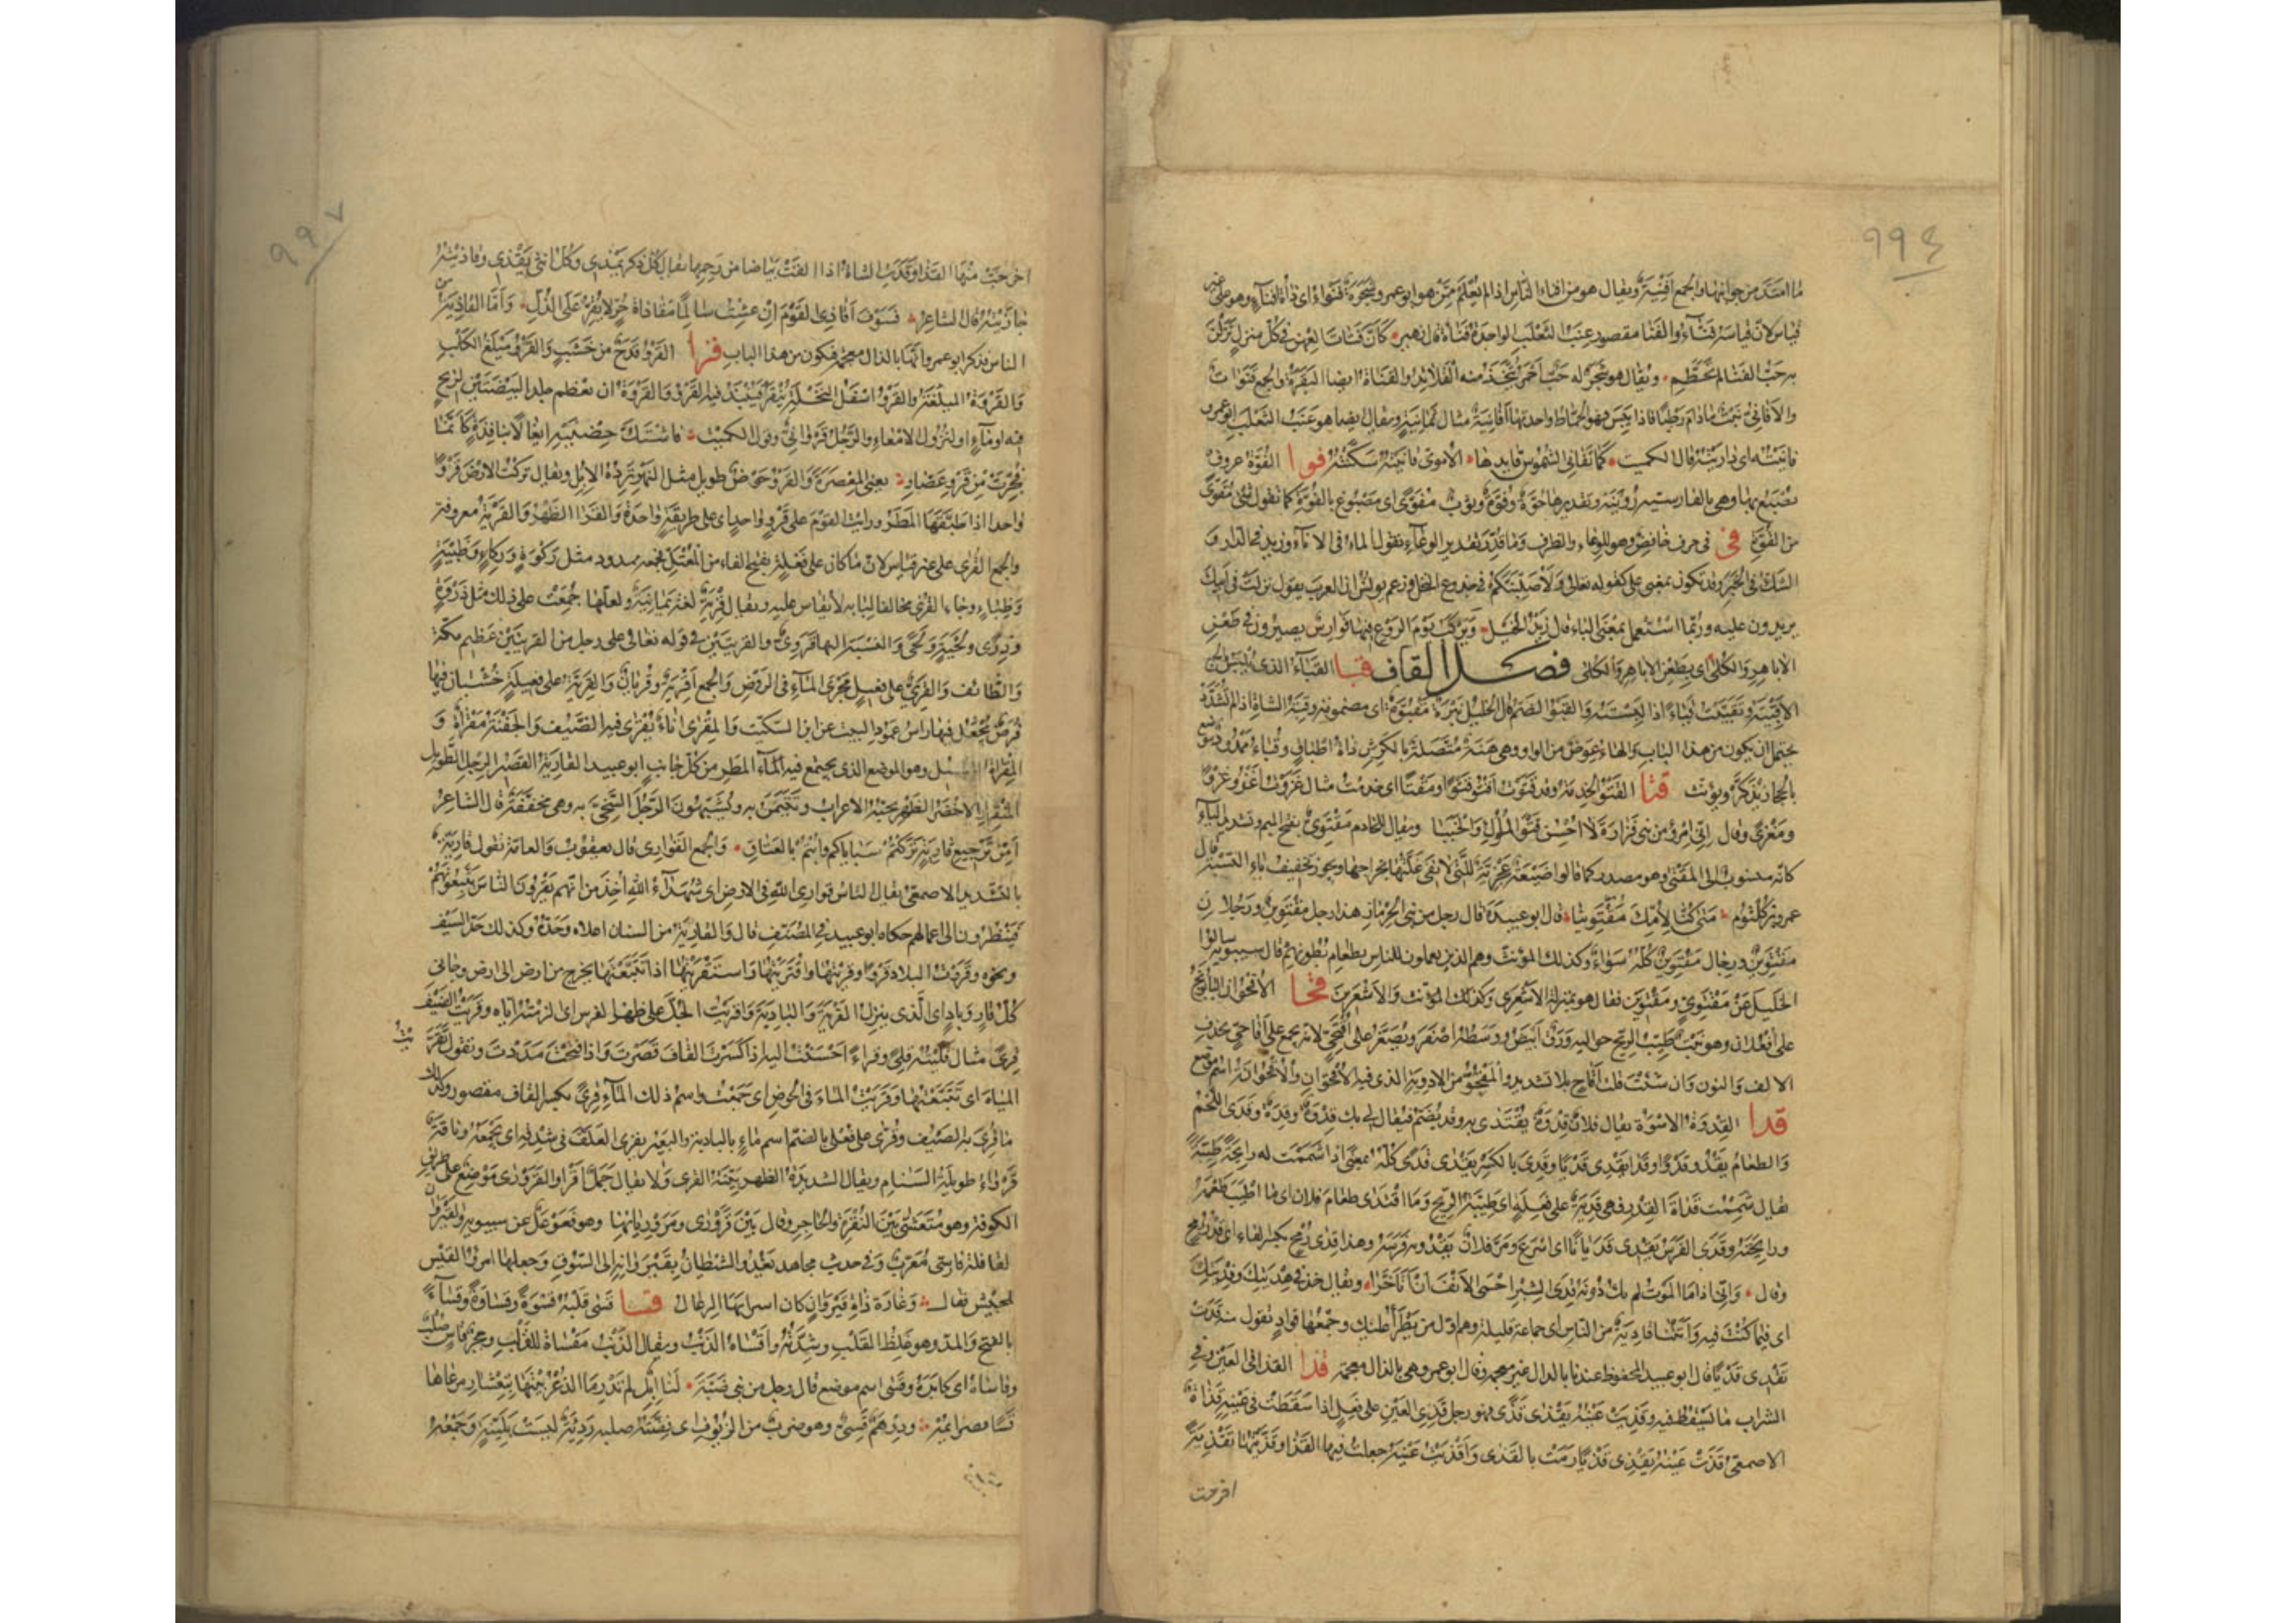 ٩٩٤
ما امتد من جوانبها والجمع افنية ويقال هو من افناء الناس اذا لم يعلم ممن هو ابو عمرو شجرة فنواء اى ذاة افنان وهو على غير
قياس لان قياسه فناء والفنا مقصور عنب الثعلب الواحدة فناة قال زهير كان فتات العهن فى كل منزل نزلن
به حب الفنا لم يحطم ويقال هو شجر له حب احمر تتخذ منه القلائد والفناة ايضا البقرة والجمع فنوات
والافانى نبت مادام رطبا فاذا يبس فهو الحماط واحدتها افانية مثال ثمانية ويقال ايضا هو عنب الثعلب ابو عمرو
فانيته اى داريته قال الكميت كما يفانى الشموس قايدها الاموى فانيته سكنته فوا الفوة عروق
يصبغ بها وهى بالفارسية روينه وتقديرها حوة وقوة وثوب مفوى اى مصبوغ بالفوة كما تقول شئ مقوى
من القوة فى فى حرف خافض وهو للوعاء والظرف وما قدر تقدير الوعاء تقول الماء فى الاناء وزيد فى الدار و
الشك فى الخبر وقد تكون بمعنى على كقوله تعالى ولاصلبنكم فى جذوع النخل وزعم يونس ان العرب تقول نزلت فى ابيك
يريدون عليه وربما استعمل بمعنى الباء قال زيد الخيل ويركب يوم الروع فيها فوارس بصيرون فى طعن
الاباهر والكلى اى بطعن الاباهر والكلى فصل القاف قبا القباء الذى يلبس والجمع
الاقبية وتقبيت قباء اذا لبسته والقبو الضم قال الخليل نبرة مقبوة اى مضمومة وقبة الشاة اذا لم تشدد
يحتمل ان يكون من هذا الباب والهاء عوض من الواو وهى هنة متصلة بالكرش ذاة اطباق وقباء ممدود موضع
بالحجاز يذكر ويؤنث قتا القتو الخدمة وقد قتوت اقتو قتوا ومقتا اى خدمت مثال غزوت اغزو غزوا
ومغزى وقال انى امرؤ من بنى فزارة لا احسن قتو الملوك والخببا ويقال للخادم مقتوى بفتح الميم وتشديد الياء
كانه منسوب الى المقتى وهو مصدر كما قالوا ضيعة عجزية للتى لا تفى غلتها بخراجها ويجوز تخفيف ياء النسبة قال
عمرو بن كلثوم متى كنا لامك مقتوينا قال ابو عبيدة قال رجل من بنى الحرماز هذا رجل مقتوين ورجلان
مقتوين ورجال مقتوين كله سواء وكذلك المؤنث وهم الذين يعملون للناس بطعام بطونهم قال سيبويه سالوا
الخليل عن مقتوى ومقتوين فقال هو بمنزلة الاشعرى وكذلك المؤنث والاشعرين قحا الاقحوان البابونج
على افعلان وهو نبت طيب الريح حواليه ورق ابيض ووسطه اصفر ويصغر على اقيحى لانه يجمع على اقاحى بحذف
الالف والنون وان شئت قلت اقاح بلا تشديد والمقحو من الادوية الذى فيه الاقحوان والاقحوانة اسم موضع
قدا القدوة الاسوة يقال فلان قدوة يقتدى به وقد يضم فيقال لى بك قدوة وقدوة وقدى اللحم
والطعام يقدو قدوا وقدا يقدى قديا وقدى بالكسر يقدى قدى كله بمعنى اذا شممت له رايحة طيبة
يقال شممت قداة القدر فهى قدية على فعلة اى طيبة الريح وما اقدى طعام فلان اى ما اطيب طعمه
ورايحته وقدى الفرس يقدى قديانا اى اسرع ومر فلان يقدو به فرسه وهذا قدى رمح بكسر القاف اى قدر رمح
وقال وانى اذا ما الموت لم يك دونه قدى الشبر احمى الانف ان اتاخرا ويقال خذ فى هديتك وقديتك
اى فيما كنت فيه واتتنا قادية من الناس اى جماعة قليلة وهم اول من يطرأ عليك وجمعها قواد تقول منه قدت
تقدى قديا قال ابو عبيد المحفوظ عندنا بالدال غير معجمة وقال ابو عمرو وهى بالذال معجمة قذا القذا فى العين وفى
الشراب ما يسقط فيه وقذيت عينه تقذى قذى فهو رجل قذى العين على فعل اذا سقطت فى عينه قذاة
الاصمعى قذت عينه تقذى قذيا رمت بالقذى واقذيت عينه جعلت فيها القذا وقذيتها تقذية
اخرجت
٩٩٧
اخرجت منها القذا وقذت الشاة اذا القت بياضا من رحمها يقال كل ذكر يمذى وكل انثى تقذى وقاذيته
جازيته قال الشاعر فسوف اقاذى القوم ان عشت سالما مقاذاة حر لا يقر على الذل واما القاذية من
الناس فذكر ابو عمرو انها بالذال معجمة فيكون من هذا الباب قرا القرو قدح من خشب والقرو ميلغ الكلب
والقروة الميلغة والقرو اسفل النخلة ينقر فينبذ فيه القرو والقروة ان يعظم جلد البيضتين لريح
فيه او ماء او لنزول الامعاء والرجل قروانى وقول الكميت فاشتك خصييه ايغالا بنافذة كانما
فجرت من قرو عصار يعنى المعصرة والقرو حوض طويل مثل النهر ترده الابل ويقال تركت الارض قروا
واحدا اذا طبقها المطر ورايت القوم على قرو واحد اى على طريقة واحدة والقرا الظهر والقرية معروفة
والجمع القرى على غير قياس لان ما كان على فعلة بفتح الفاء من المعتل فجمعه ممدود مثل ركوة وركاء وظبية
وظباء وجاء القرى مخالفا لبابه لا يقاس عليه ويقال قرية لغة يمانية ولعلها جمعت على ذلك مثل ذروة
وذرى ولحية ولحى والنسبة اليها قروى والقريتين فى قوله تعالى على رجل من القريتين عظيم مكة
والطائف والقرى على فعيل مجرى الماء فى الروض والجمع اقرية وقريان والقرية على فعيلة خشبتان فيها
فرض يجعل فيها راس عمود البيت عن ابن السكيت والمقرى اناء يقرى فيه الضيف والجفنة مقراة و
المقراة المسيل وهو الموضع الذى يجتمع فيه الماء المطر من كل جانب ابو عبيد القارية القصير الرجل الطويل
المنقار الاخضر الظهر يحبه الاعراب وتتيمن به ويشبهون الرجل السخى به وهى مخففة قال الشاعر
امن ترجيع قارية تركتم سباياكم وابتم بالعناق والجمع القوارى قال يعقوب والعامة تقول قارية
بالتشديد الاصمعى يقال الناس قوارى الله فى الارض اى شهداء الله اخذ من انهم يقرون الناس يتبعونهم
فينظرون الى اعمالهم حكاه ابو عبيد فى المصنف قال والقارية من السنان اعلاه وحده وكذلك حد السيف
ونحوه وقروت البلاد قروا وقريتها واقتريتها واستقريتها اذا تتبعتها تخرج من ارض الى ارض وجانى
كل قار وباد اى الذى ينزل القرية والبادية واقريت الجل على ظهر الفرس اى الزمته اياه وقريت الضيف
قرى مثال قليته قلى وقراء احسنت اليه اذا كسرت القاف قصرت واذا فتحت مددت وتقول تقريت
المياه اى تتبعتها وقريت الماء فى الحوض اى جمعت واسم ذلك الماء قرى بكسر القاف مقصور وكذلك
ما قرى به الضيف وقرى على فعلى بالضم اسم ماء بالبادية والبعير يقرى العلف فى شدقه اى يجمعه وناقة
قرواء طويلة السنام ويقال الشديدة الظهر بينة القرى ولا يقال جمل اقرا والقرورى موضع على طريق
الكوفة وهو متعشى بين النقرة والحاجر وقال بين قرورى ومرورياتها وهو فعوعل عن سيبويه والقيروان
القافلة فارسى معرب وفى حديث مجاهد يغدو الشيطان بقيروانه الى السوق وجعلها امرؤ القيس
الجيش فقال وغارة ذاة قيروان كان اسرابها الرعال قسا قسى قلبه قسوة وقساوة وقساء
بالفتح والمد وهو غلظ القلب وشدته واقساه الذنب ويقال الذنب مقساة للقلب وحجر قاس صلب
وقاساه اى كابده وقسى اسم موضع قال رجل من بنى ضبة لنا ابل لم تدر ما الذعر بيتها بتعشار مرعاها
قسا فصرايمه ودرهم قسى وهو ضرب من الزيوف اى فضته صلبة رديئة ليست بلينة وجمعه